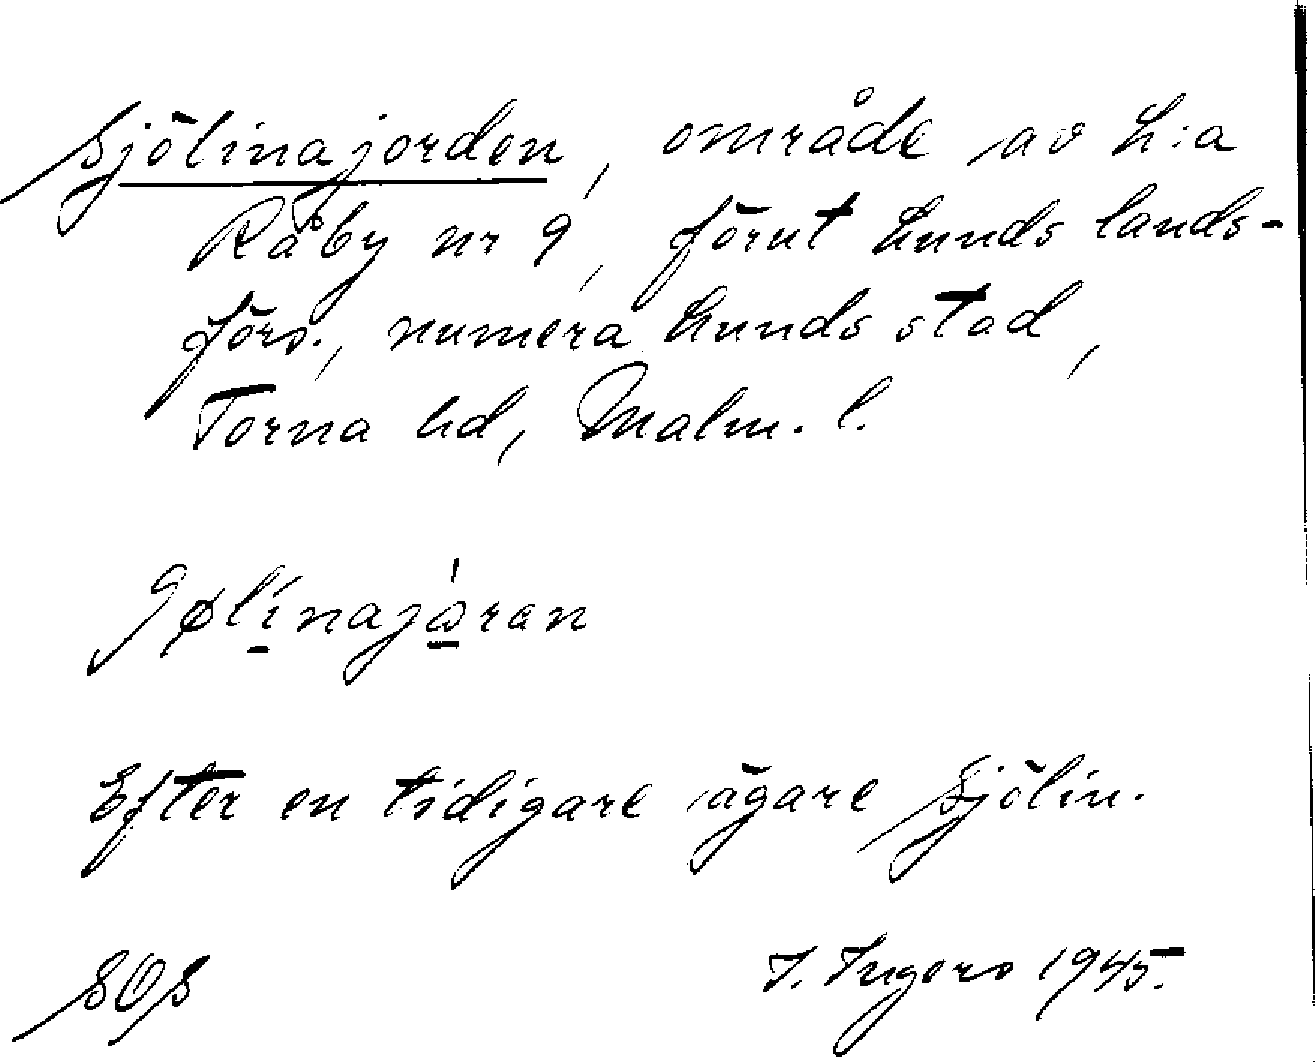 Sjölinajorden, område av L:a
Råby nr 9, förut Lunds lands-
förs., numera Lunds stad,
Torna hd, Malm. l.
Sølinajåren
Efter en tidigare ägare Sjölin.
SOS
I. Ingers 1945.